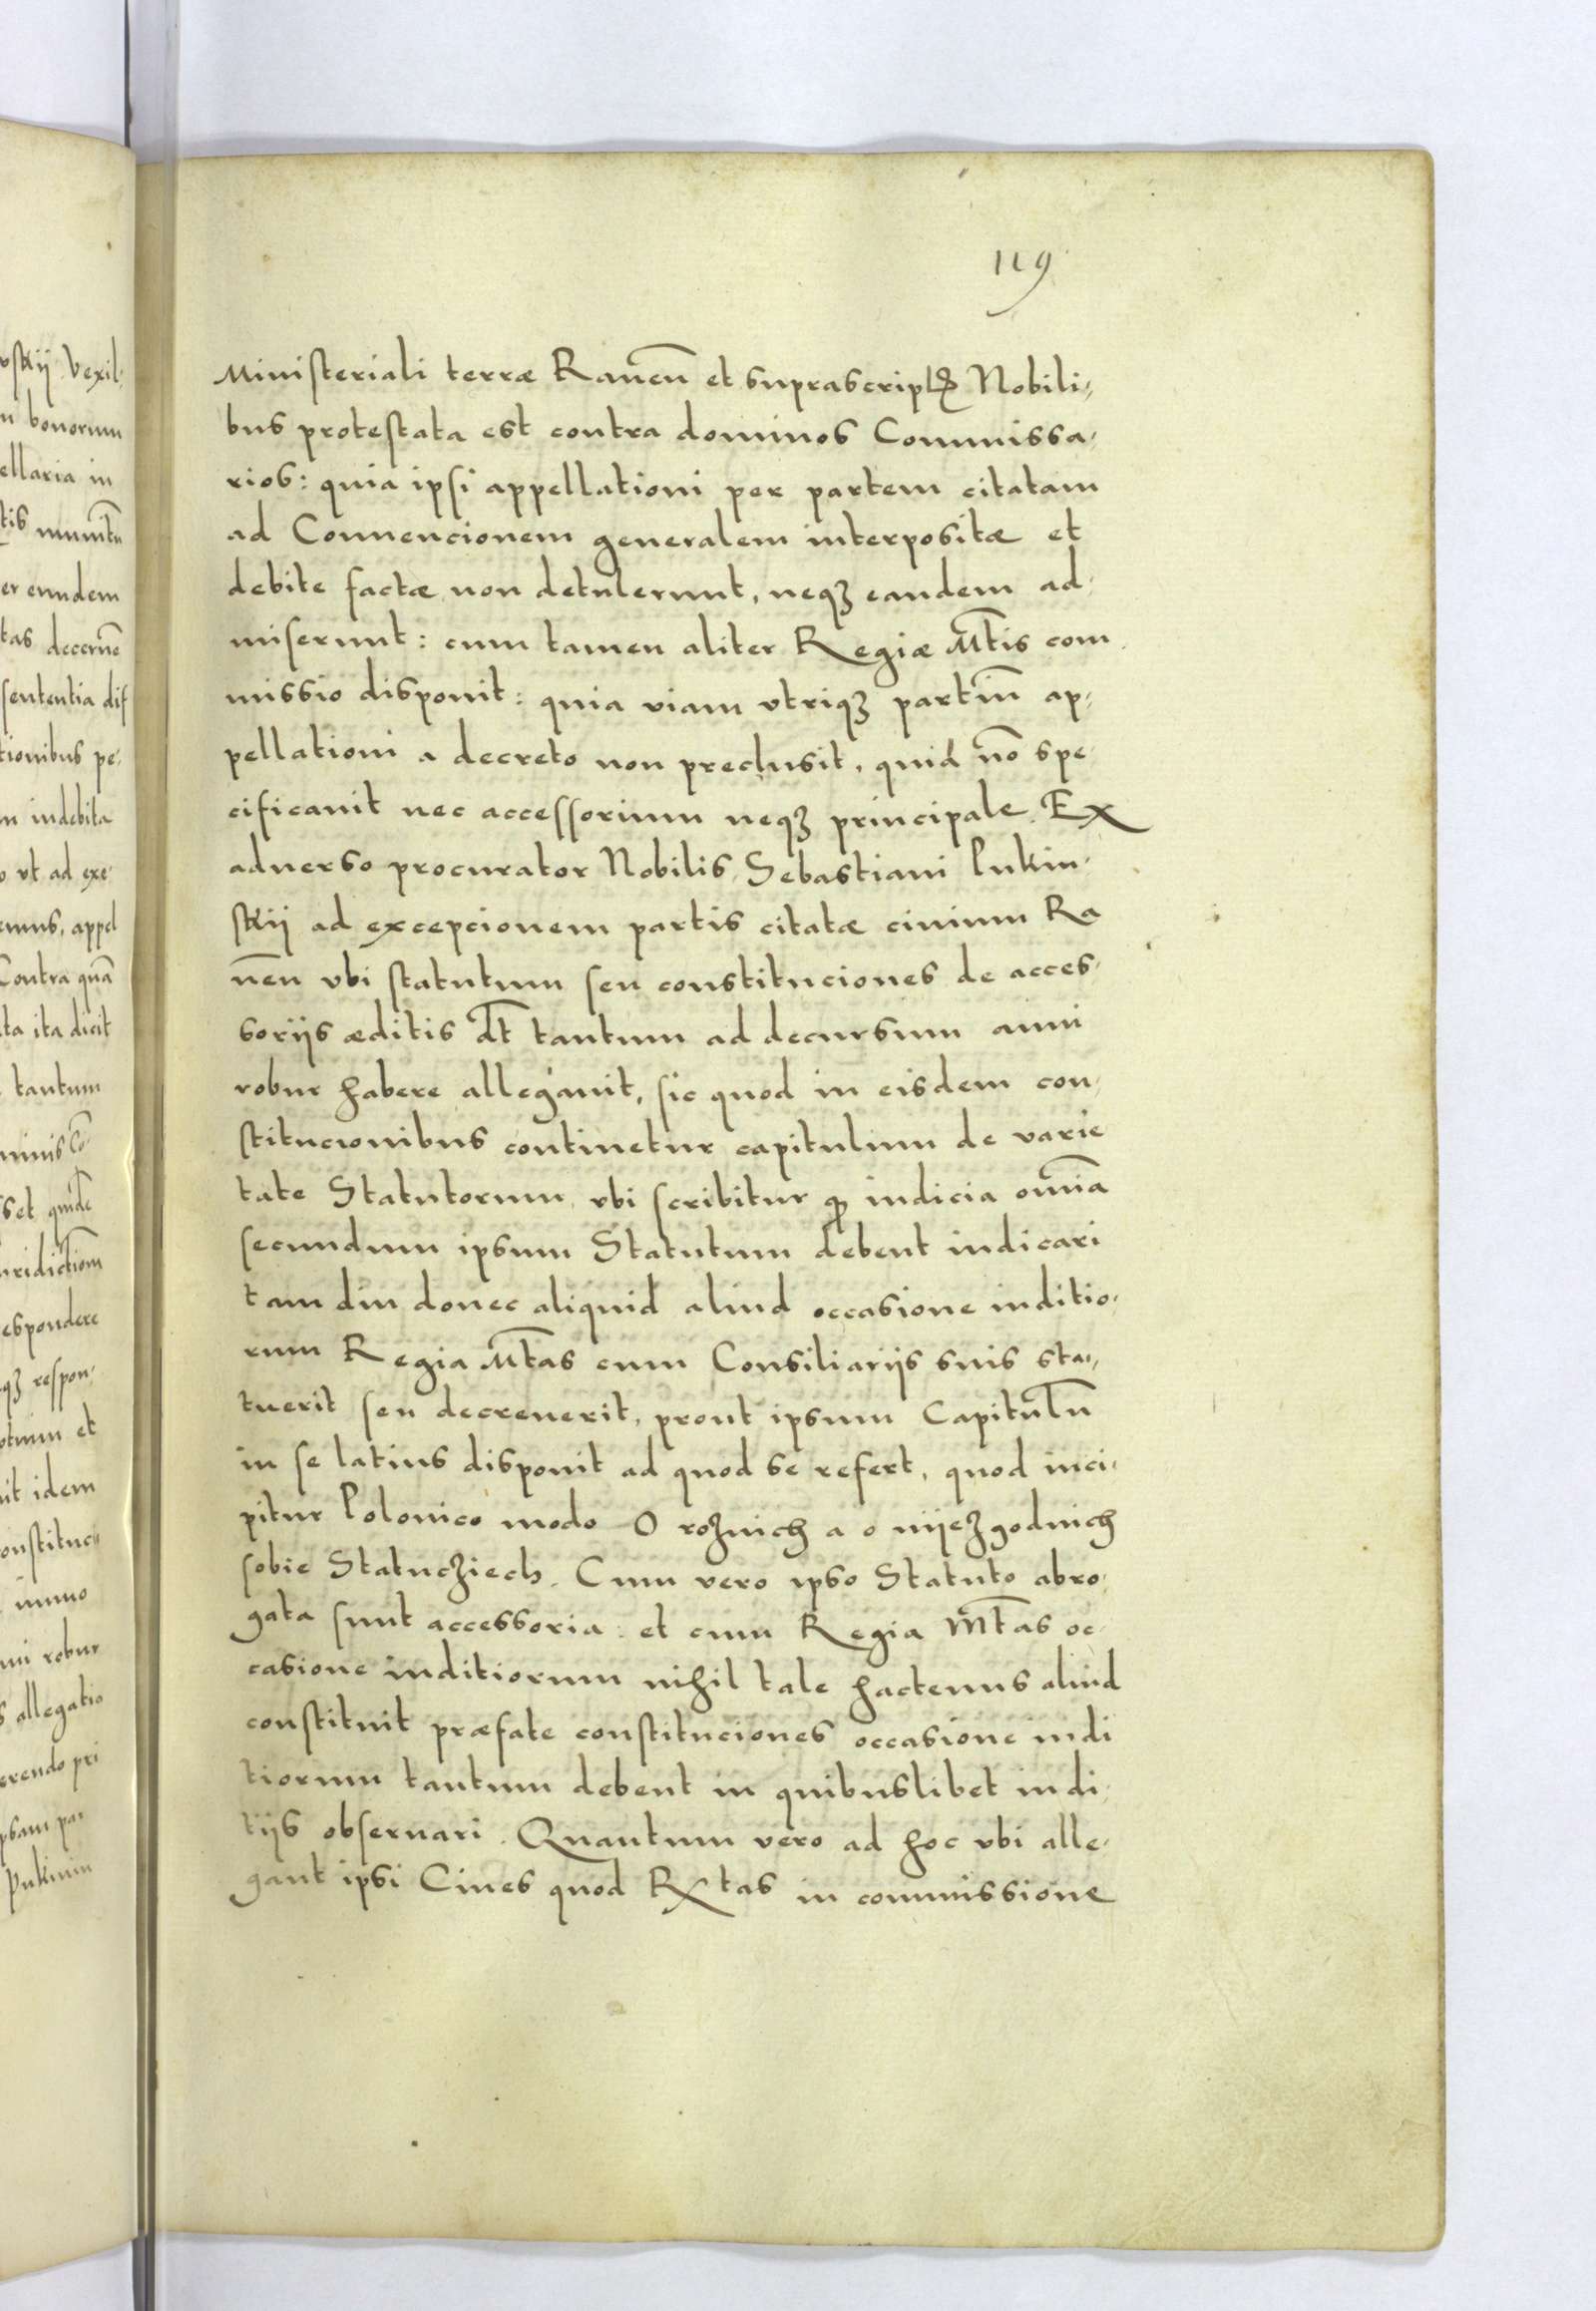 119
Ministeriali terræ Rauen̄ et suprascriptꝭ Nobili-
bus protestata est contra dominos Commissa-
rios: quia ipsi appellationi per partem citatam
ad Conuencionem generalem interpositæ et
debite factæ non detulerunt, neqꝫ eandem ad-
miserunt: cum tamen aliter Regiæ M̄tis com
missio disponit: quia viam vtriqꝫ partiū ap-
pellationi a decreto non preclusit, quia nō spe-
cificauit nec accessorium neqꝫ principale. Ex
aduerso procurator Nobilis Sebastiani Pukin-
skii ad excepcionem partis citatæ ciuium Ra
uen̄ vbi statutum seu constituciones de acces-
sorijs æditis dt̄ tantum ad decursum anni
robur habere allegauit, sic quod in eisdem con-
stitucionibus continetur capitulum de varie
tate Statutorum, vbi scribitur ꝙ iudicia omīa
secundum ipsum Statutum debent iudicari
tam diu donec aliquid aliud occasione iuditio-
rum Regia M̄tas cum Consiliarijs suis sta-
tuerit seu decreuerit, prout ipsum Capitulū
in se latius disponit ad quod se refert, quod inci-
pitur Polonico modo O roznich a o nijezgodnich
sobie Statucziech. Cum vero ipso Statuto abro-
gata sunt accessoria: et cum Regia M̄tas oc-
casione iuditiorum nihil tale hactenus aliud
constituit præfate constituciones occasione iudi
tiorum tantum debent in quibuslibet iudi-
tijs obseruari. Quantum vero ad hoc vbi alle-
gant ipsi Ciues quod Rx tas in commissione